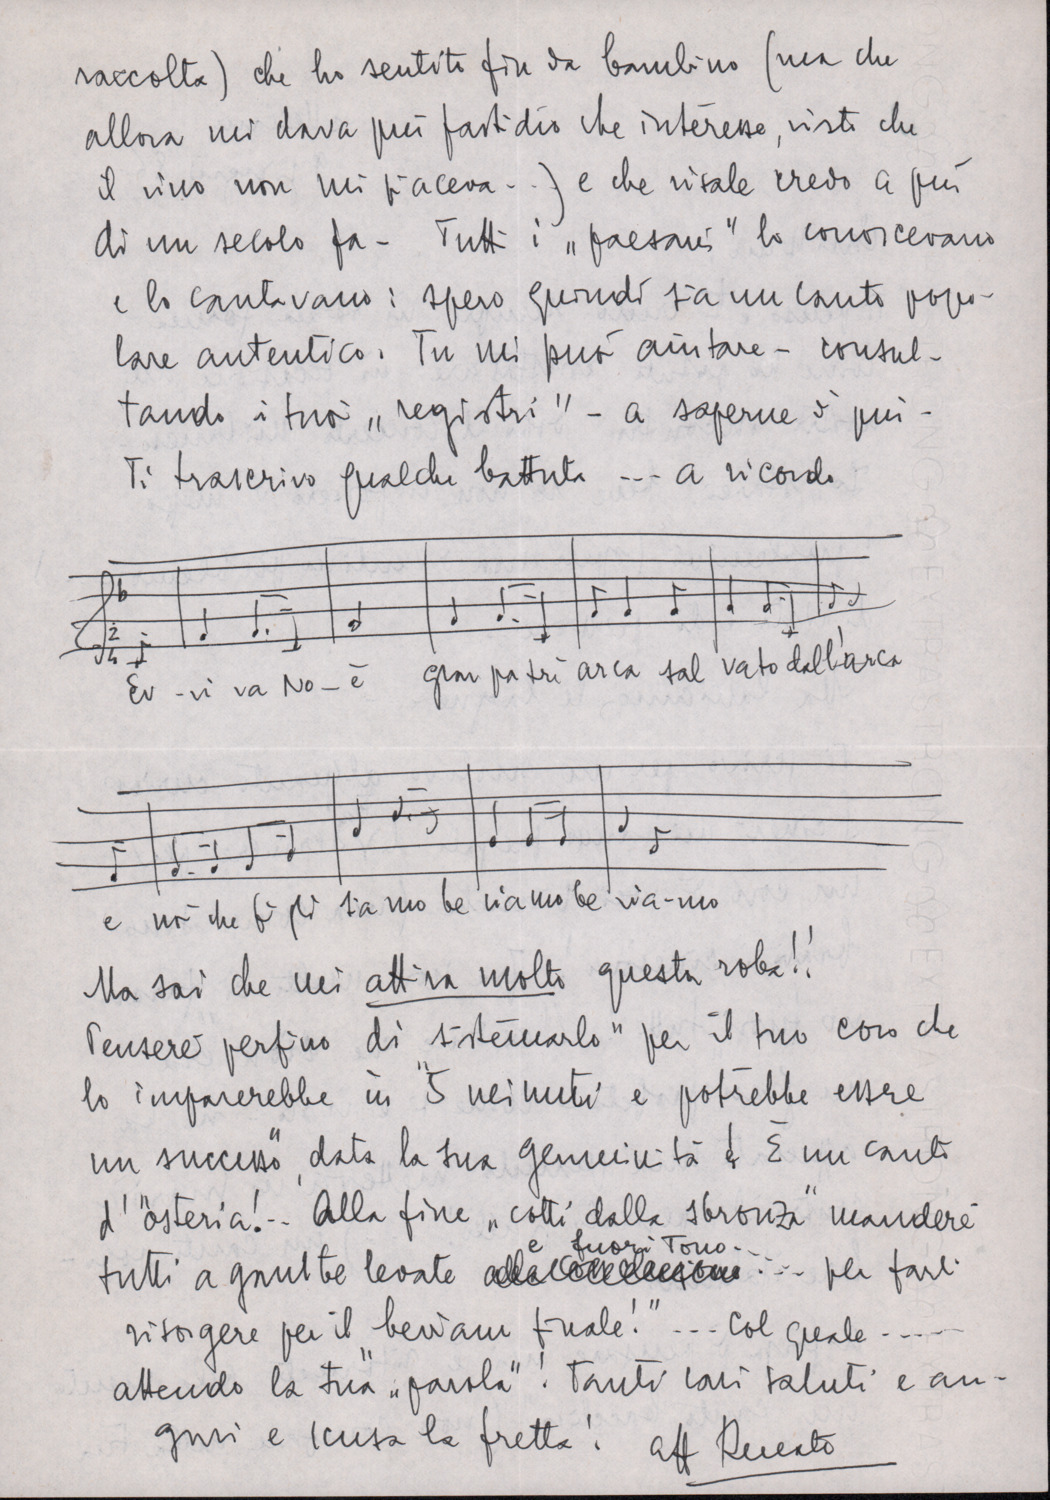 raccolta) che ho sentito fin da bambino (ma che
allora mi dava più fastidio che interesse, visto che
il vino non mi piaceva...) e che risale credo a più
di un secolo fa - Tutti i „paesani" lo conoscevano
e lo cantavano: spero quindi sia un canto popo-
lare autentico. Tu mi puoi aiutare - consul-
tando i tuoi „registri" - a saperne di più -
Ti trascrivo qualche battuta --- a ricordo
2
4
Ev - vi va No - è gran pa tri arca sal vato dall'arca
e noi che fi gli sia mo be viamo be via-mo
Ma sai che mi attira molto questa roba!!
Penserei perfino di "sistemarlo" per il tuo coro che
lo imparerebbe in "5 minuti e potrebbe essere
un successo", data la sua genuinità! È un canto
d'"osteria!.. Alla fine „cotti dalla sbronza" manderei
e fuori Tono...
tutti a gambe levate .... per farli
risorgere per il "beviam finale!" --- Col quale -----
attendo la tua „parola"! Tanti cari saluti e au-
guri e scusa la fretta! aff Renato